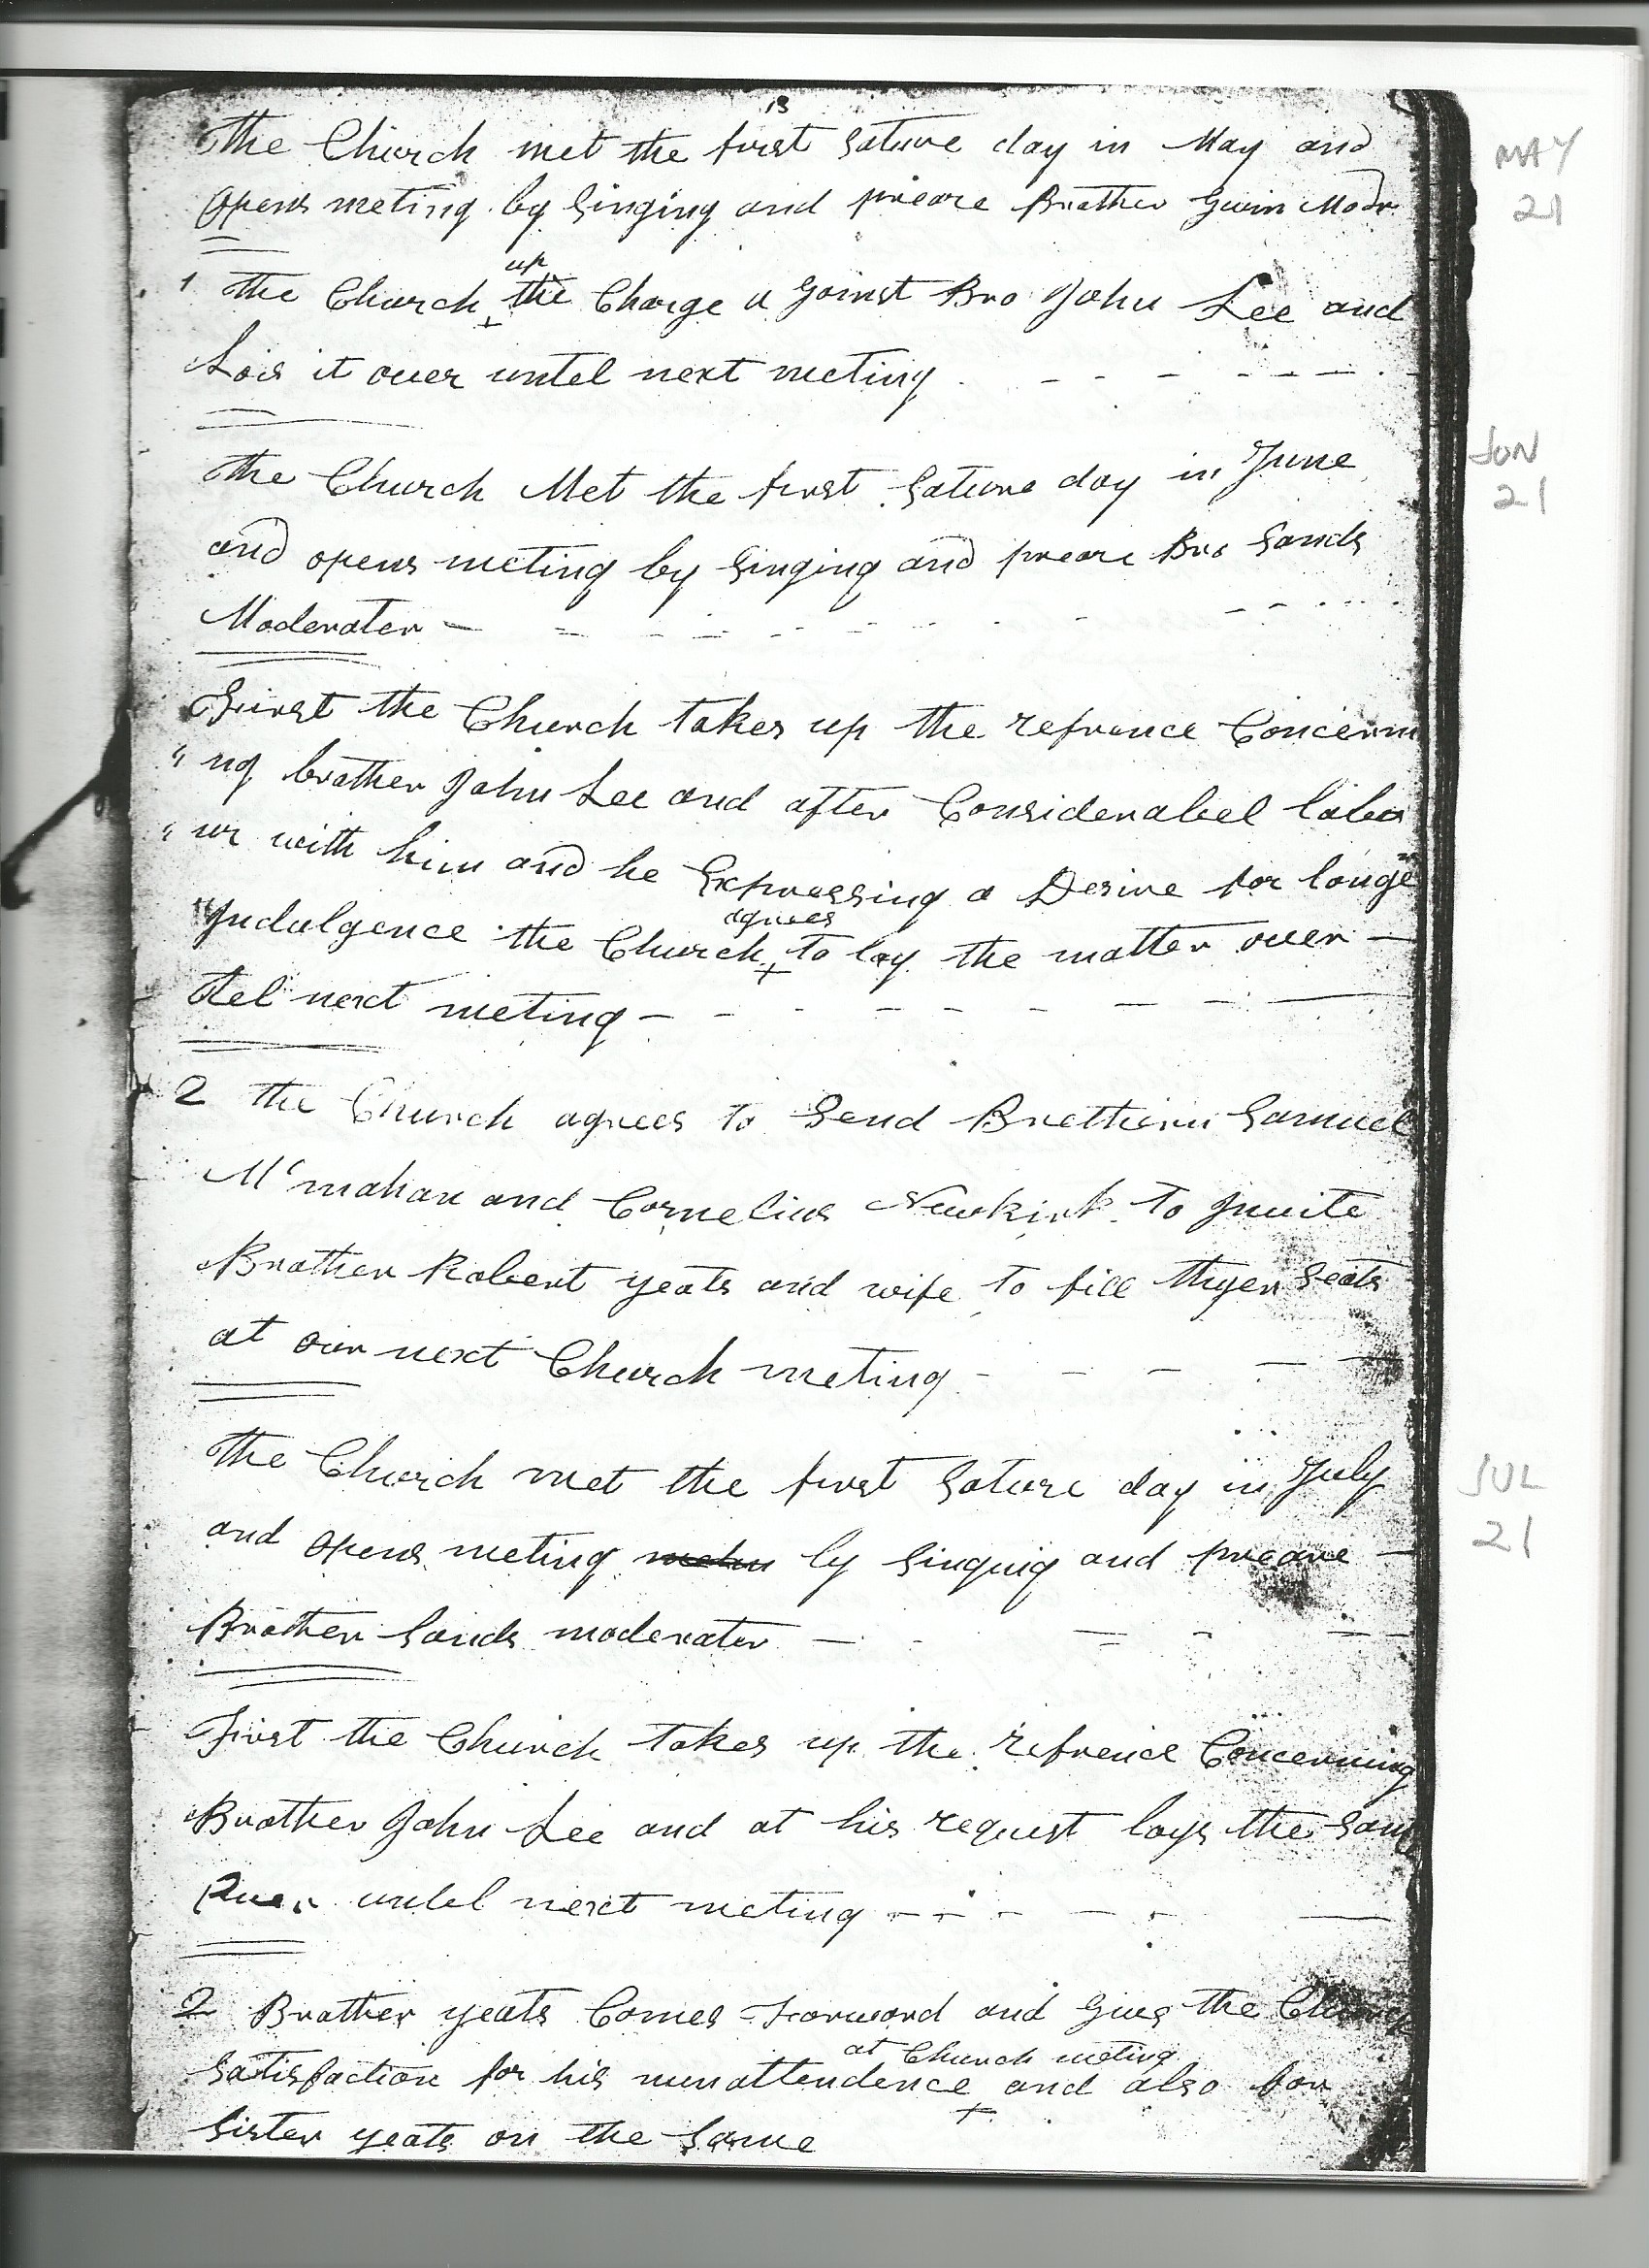 13
The Church met the first Sature day in May and
MAY
21
opens meting by Singing and preare Brother Gwin Modr
up
1 the Church the Charge a gainst Bro John Lee and
Lais it over untel next meting
The Church Met the first Sature day in June
JUN
21
and opens meting by Singing and preare Bro Sands
Moderater
First the Church takes up the refrance Concern
" ng brother John Lee and after Considerabel labo
" ur with him and he Expressing a Desire for longe
agrees
Indulgence the Church to lay the matter over
tel next meting
2 the Church agrees to Send Bretheren Samuel
Mcmahan and Cornelius Newkirk to Invite
Brother Robert yeats and wife to fill thyer Seats
at our next Church meting
The Church met the first Sature day in July
JUL
21
and opens meting by Singing and preare
Brother Sands moderater
First the Church takes up the refrence Concerning
Brother John Lee and at his request lays the Same
over untel next meting
2 Brother yeats Comes Forword and gives the Church
at Church meting
Satisfaction for his nunattendence and also for
Sister yeats on the Same